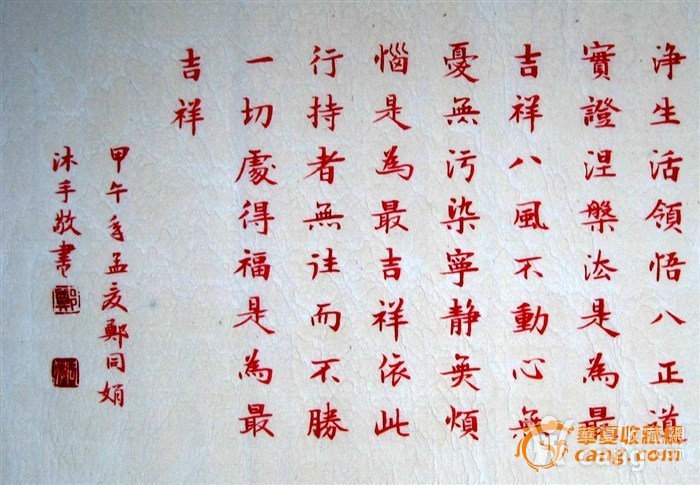 浄生活領悟八正道
實證涅槃法是為最
吉祥八風不動心無
憂無污染寧静無煩
惱是為最吉祥依此
行持者無往而不勝
一切處得福是為最
吉祥
甲午年孟夏鄭同娟
沐手敬書
鄭
華夏收藏網
cang.com